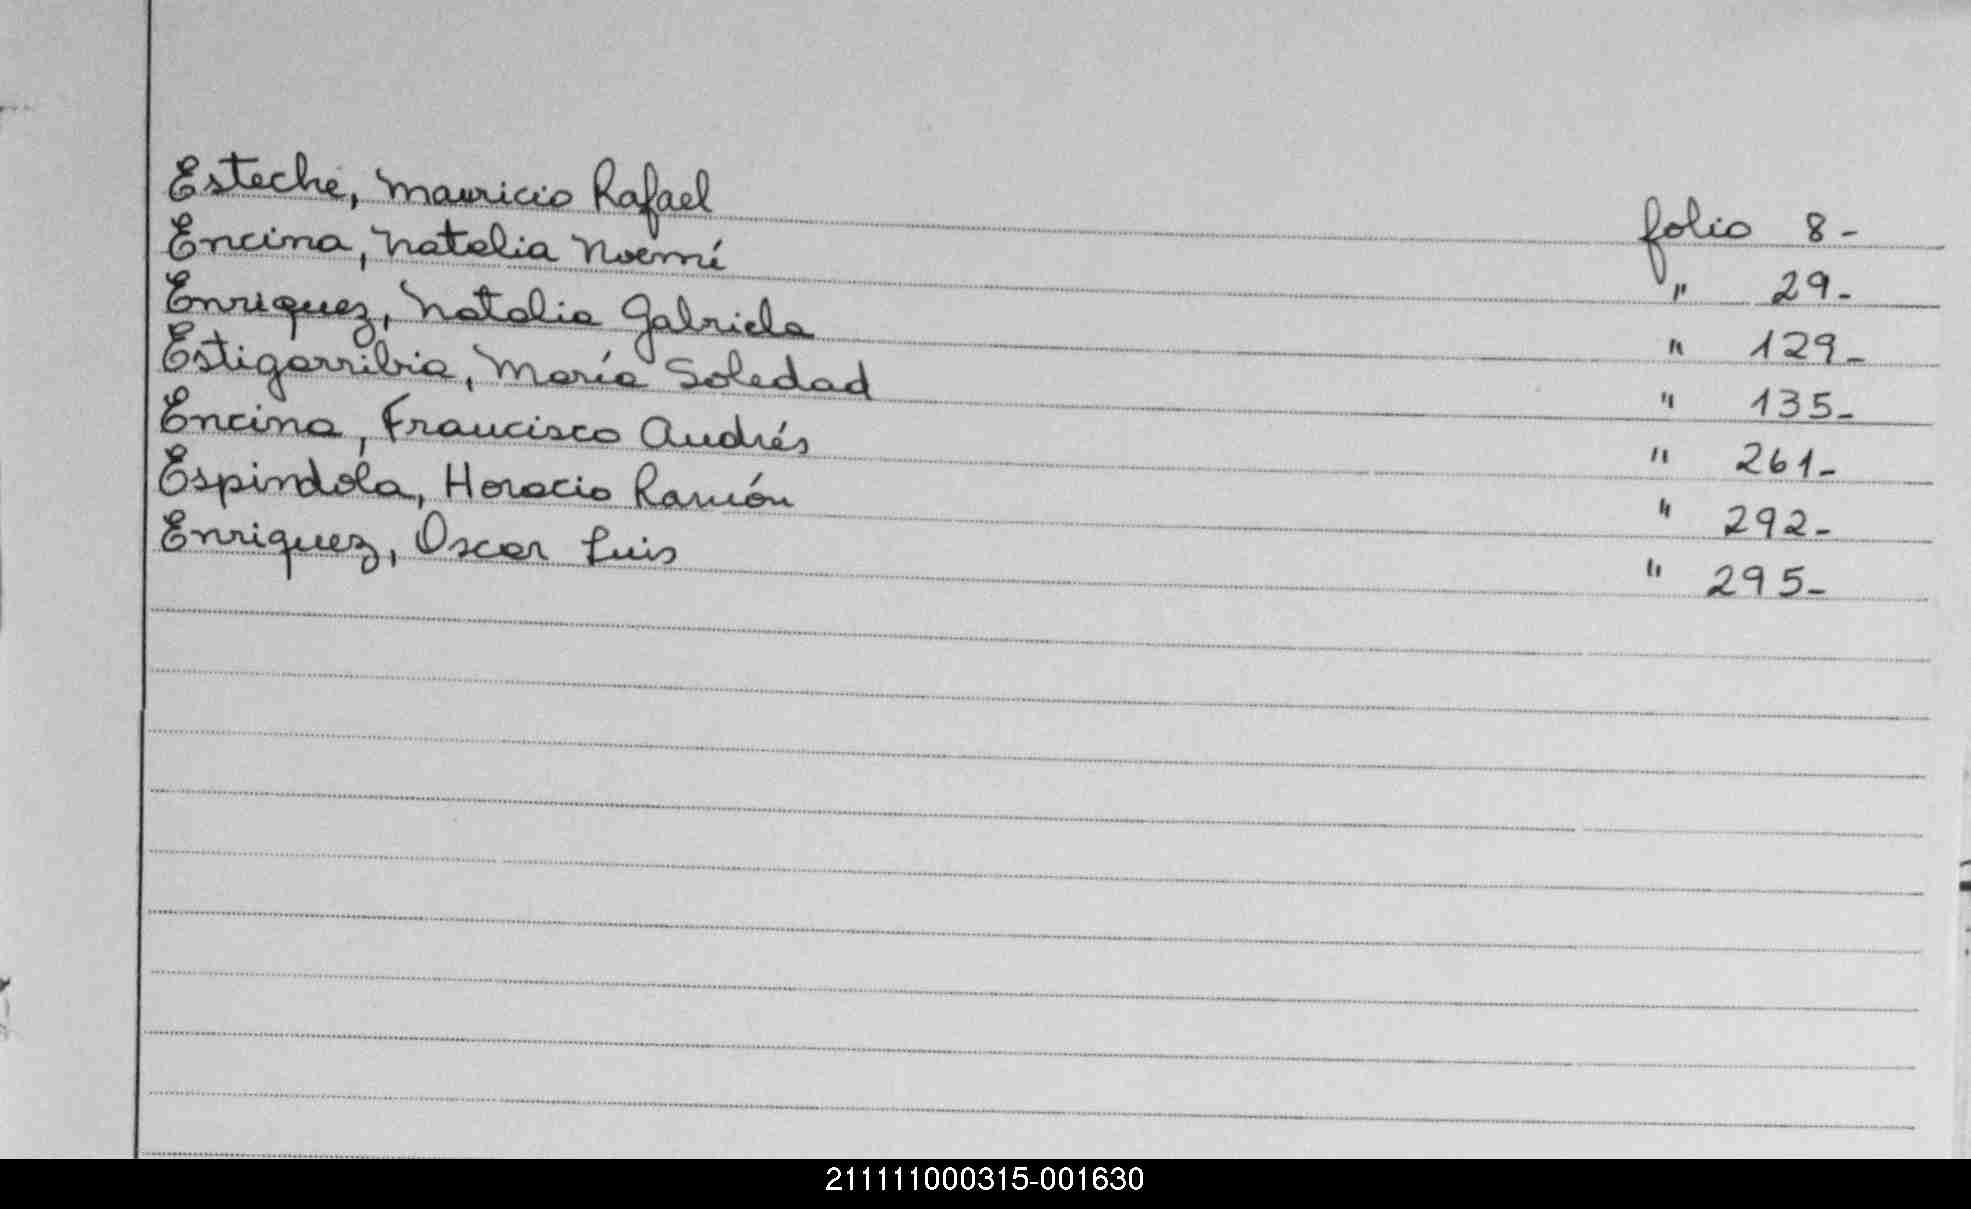 Esteche, Mauricio Rafael folio 8-
Encina, Natalia Noemí " 29-
Enriquez, Natalia Gabriela " 129-
Estigarribia, María Soledad " 135-
Encina, Francisco Andrés " 261-
Espindola, Horacio Ramón " 292-
Enriquez, Oscar Luis " 295-
211111000315-001630